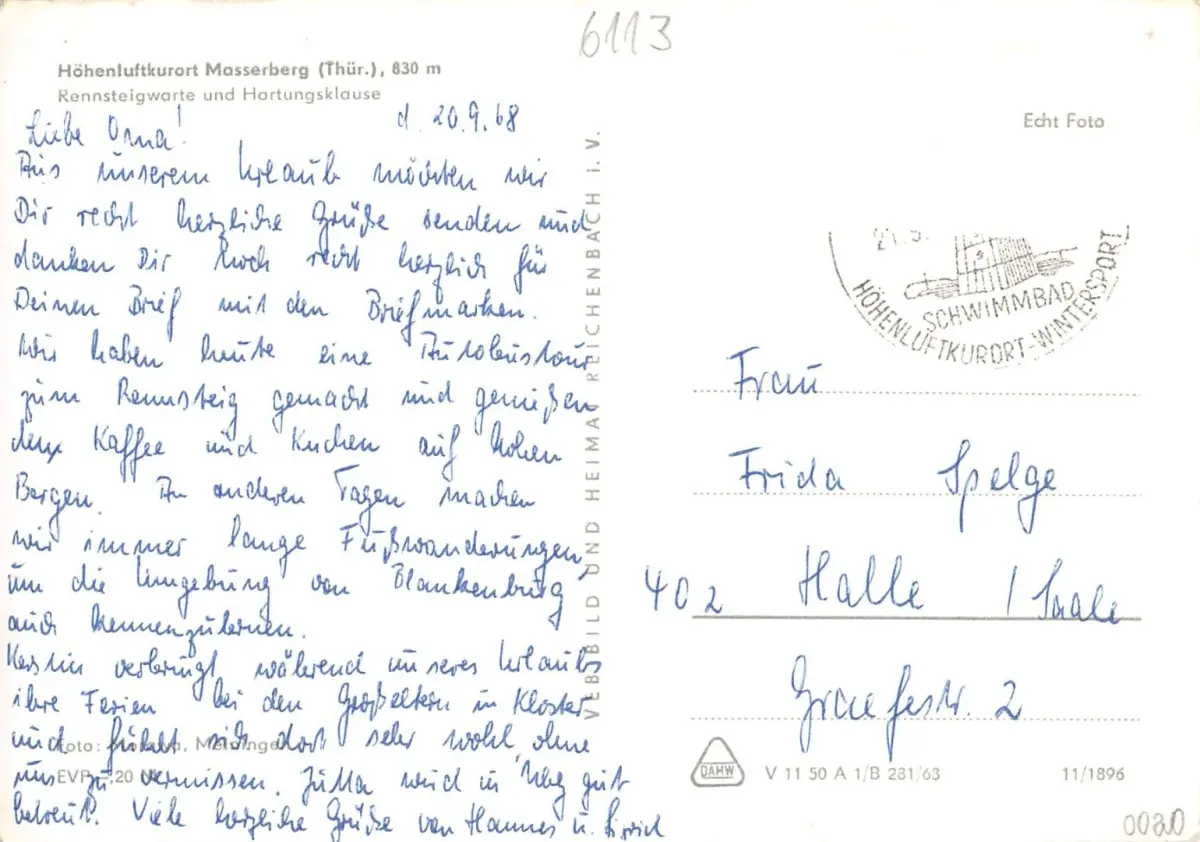 6113
Höhenluftkurort Masserberg (Thür.), 830 m
Rennsteigwarte und Hartungsklause
d. 20.9.68
Liebe Oma!
Aus unserem Urlaub möchten wir
Dir recht herzliche Grüße senden und
danken Dir noch recht herzlich für
Deinen Brief mit den Briefmarken.
Wir haben heute eine Autobustour
zum Rennsteig gemacht und genießen
den Kaffee und Kuchen auf hohen
Bergen. An anderen Tagen machen
wir immer lange Fußwanderungen,
um die Umgebung von Blankenburg
auch kennenzulernen.
Kerstin verbringt während unseres Urlaubs
ihre Ferien bei den Großeltern in Kloster
und fühlt sich dort sehr wohl, ohne
uns zu vermissen. Jutta wird in gut
betreut. Viele herzliche Grüße von Hannes u.
Foto:
EVP 20
VEB BILD UND HEIMAT REICHENBACH I. V.
Echt Foto
21.9.
SCHWIMMBAD
HÖHENLUFTKURORT-WINTERSPORT
Frau
Frida Spelge
402 Halle / Saale
Graefestr. 2
DAHW V 11 50 A 1/B 281/63 11/1896
0020